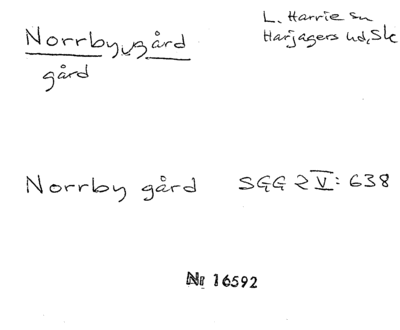 Norrby gård
gård
L. Harrie sn
Harjagers hd, Sk
Norrby gård SGG 2 V: 638
Nr 16592